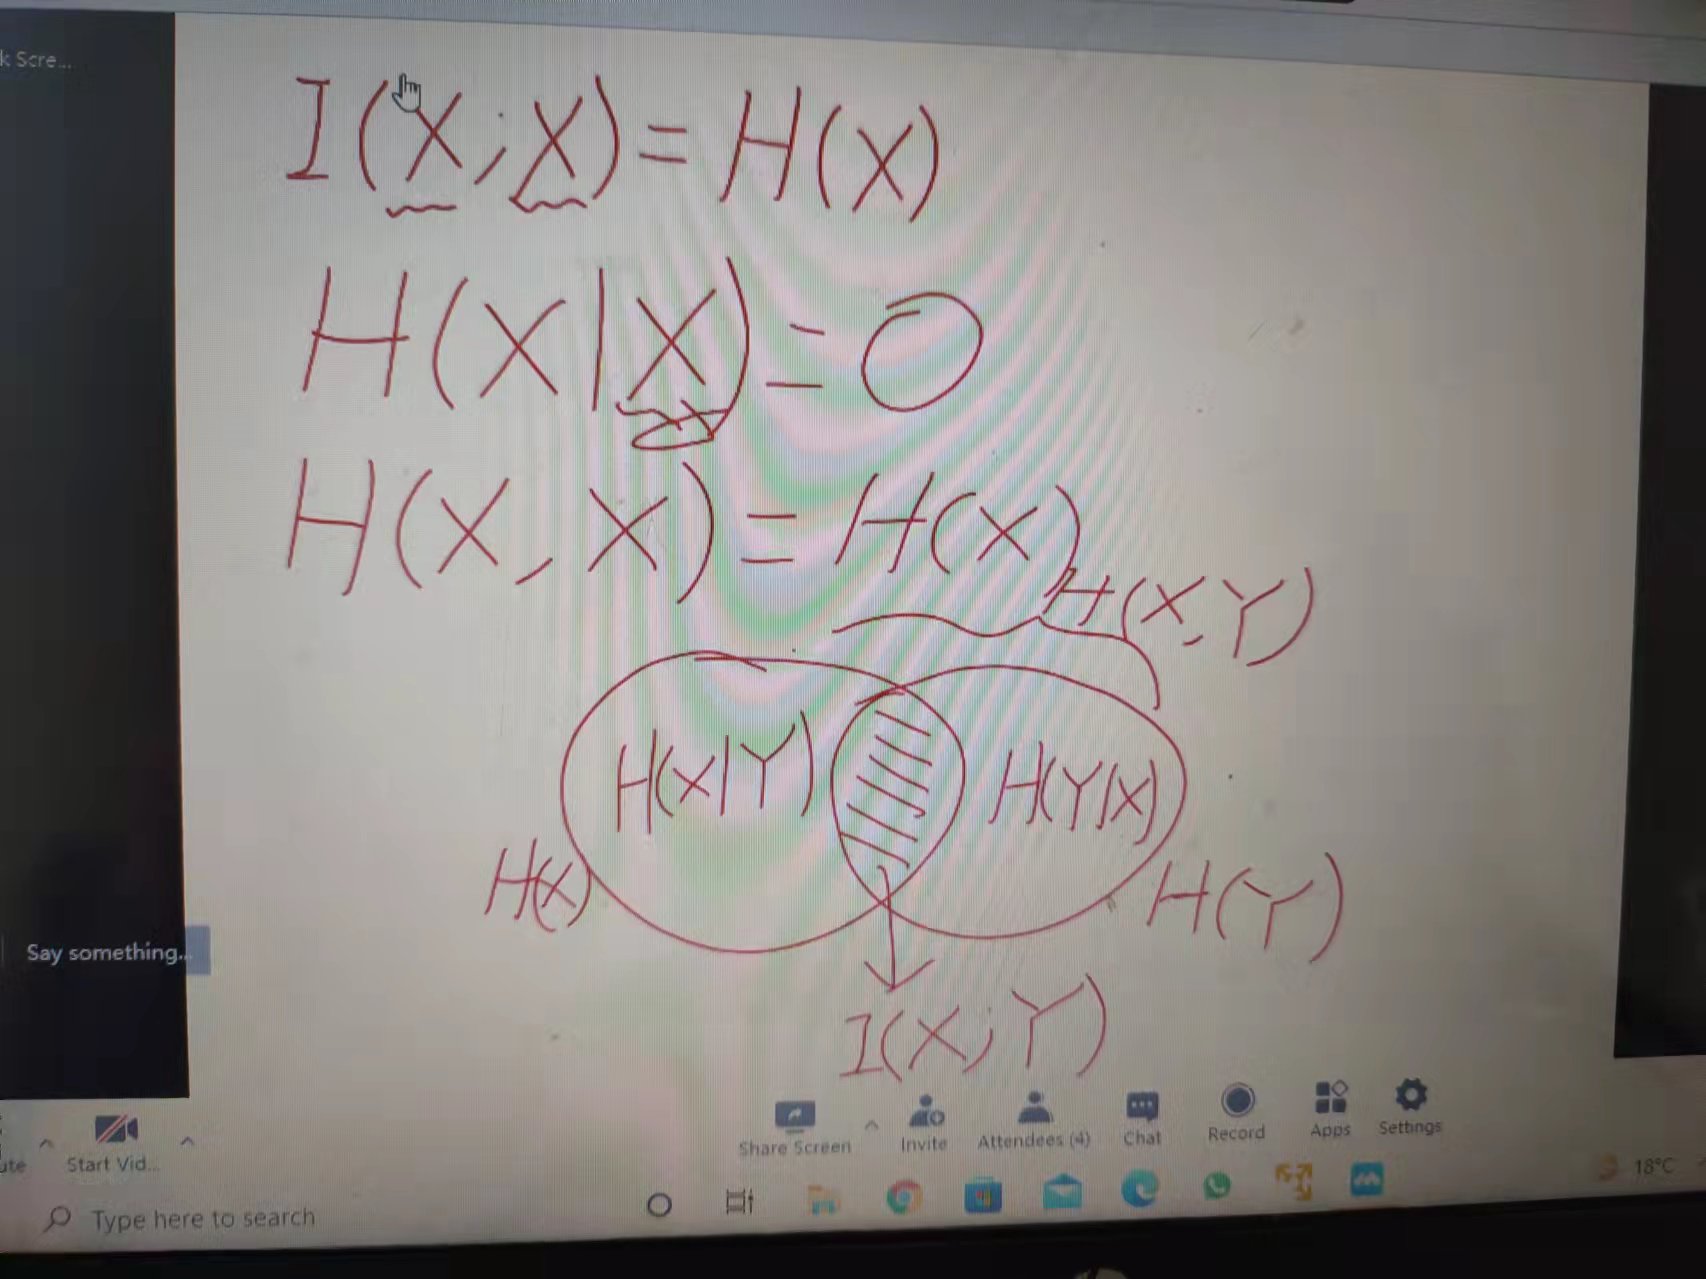 k Scre...
I(X;X)=H(X)
H(X|X)=0
H(X,X)=H(X)
H(X,Y)
H(X|Y)
H(Y|X)
H(X)
H(Y)
Say something...
I(X;Y)
Start Vid...
Share Screen
Invite
Attendees (4)
Chat
Record
Apps
Settings
18°C
Type here to search